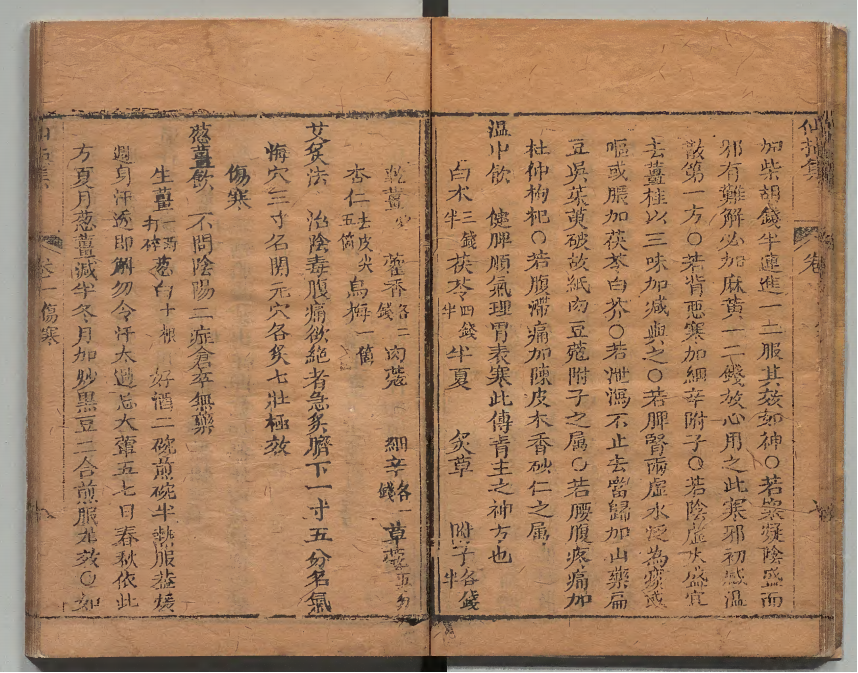 仙拈集 卷一
加柴胡錢半連進一二服其效如神○若寒凝陰盛而
邪有難解必加麻黃一二錢放心用之此寒邪初感溫
散第一方○若背惡寒加細辛附子○若陰虛火盛宜
去薑桂以三味加減與之○若脾腎兩虛水泛為痰或
嘔或脹加茯苓白芥○若泄瀉不止去當歸加山藥扁
豆吳茱萸破故紙肉豆蔻附子之屬○若腰腹疼痛加
杜仲枸杞○若腹滯痛加陳皮木香砂仁之屬
溫中飲 健脾順氣理胃表寒此傳青主之神方也
白朮三錢半 茯苓四錢半 半夏 炙草 附子各錢半
乾薑 藿香各二錢 肉蔻 細辛各一錢 草蔻五分
杏仁去皮尖五箇 烏梅一箇
艾炙法 治陰毒腹痛欲絕者急炙臍下一寸五分名氣
悔穴三寸名関元穴各炙七壯極效
傷寒
葱薑飲 不問陰陽二症倉卒無藥
生薑一兩打碎 葱白十根 好酒二碗煎碗半熱服蓋煖
週身汗透即解勿令汗太過忌大葷五七日春秋依此
方夏月葱薑減半冬月加炒黑豆二合煎服尤效○如
仙拈集 卷一傷寒